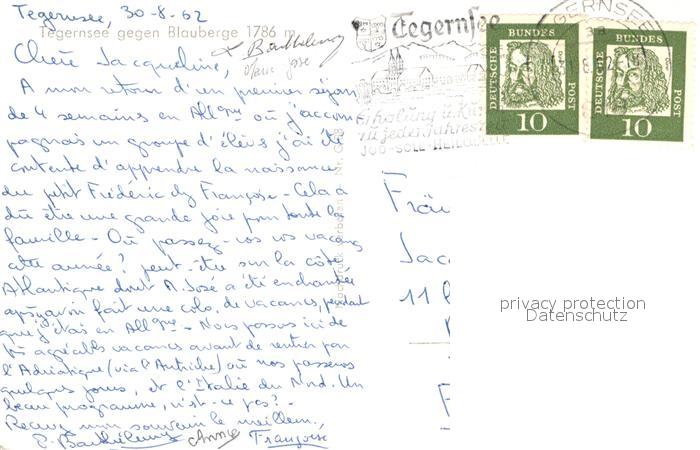 Tegernsee, 30-8-62
Tegernsee gegen Blauberge 1786 m
Chère Jacqueline,
A mon retour d'un premier séjour
de 4 semaines en Allgne où j'accom
pagnais un groupe d'élèves j'ai été
contente d'apprendre la naissance
du petit Frédéric chez Françoise - Cela a
dû être une grande joie pour toute la
famille - Où passez-vous vos vacances
cette année? peut-être sur la côte
Atlantique dont M. José a été enchantée
ayant fait une colo. de vacances, pendant
que j'étais en Allgne - Nous passons ici de
très agréables vacances avant de rentrer par
l'Adriatique (via l'Autriche) où nous passerons
quelques jours, et l'Italie du Nord. Un
beau programme, n'est-ce pas?
Recevez mon souvenir le meilleur,
E. Barthélemy Annie Françoise
Barthélemy
Marie José
Tegernsee
Erholung u. Kur
zu jeder Jahreszeit
JOD-SOLE-HEILQUELLE
DEUTSCHE BUNDES POST
10
DEUTSCHE BUNDES POST
10
TEGERNSEE
Fräu
Jac
11
privacy protection
Datenschutz